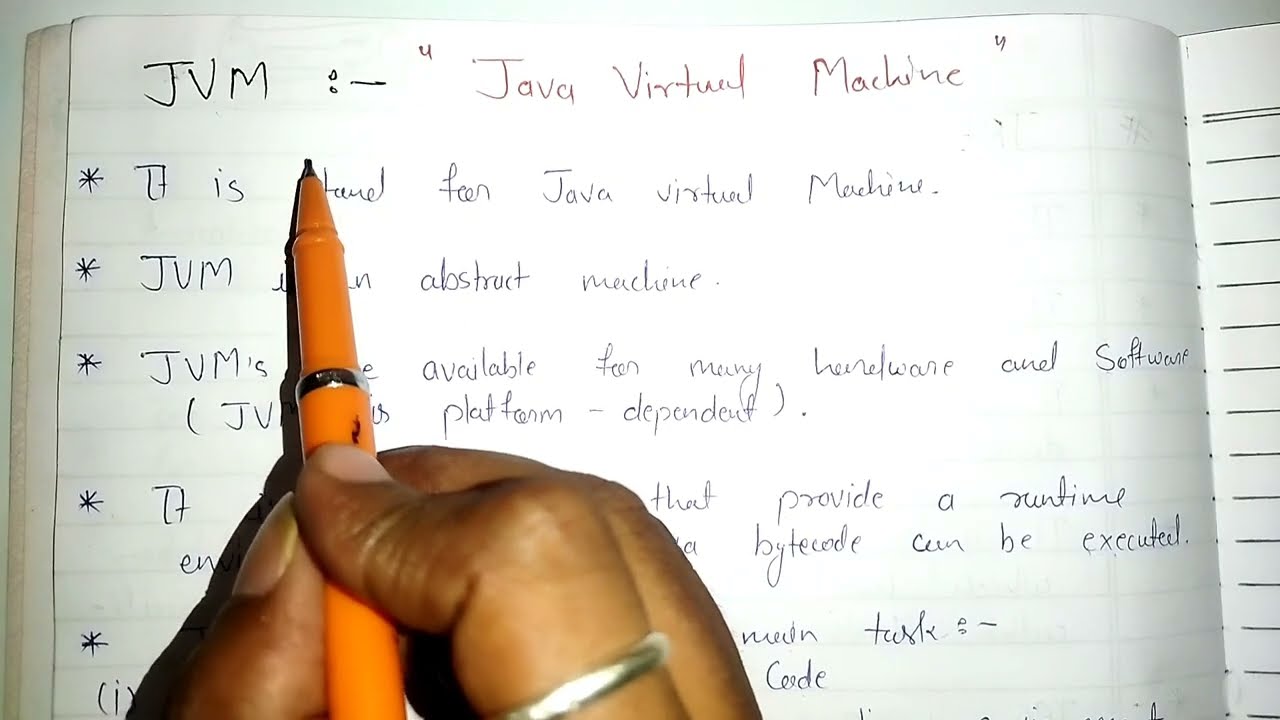 JVM :- " Java Virtual Machine "
* It is stand for Java virtual Machine.
* JVM abstract machine.
* JVM's available for many hardware and Software
( JVM is platform - dependent ).
* It that provide a runtime
bytecode can be executed.
* main task :-
(i) Code